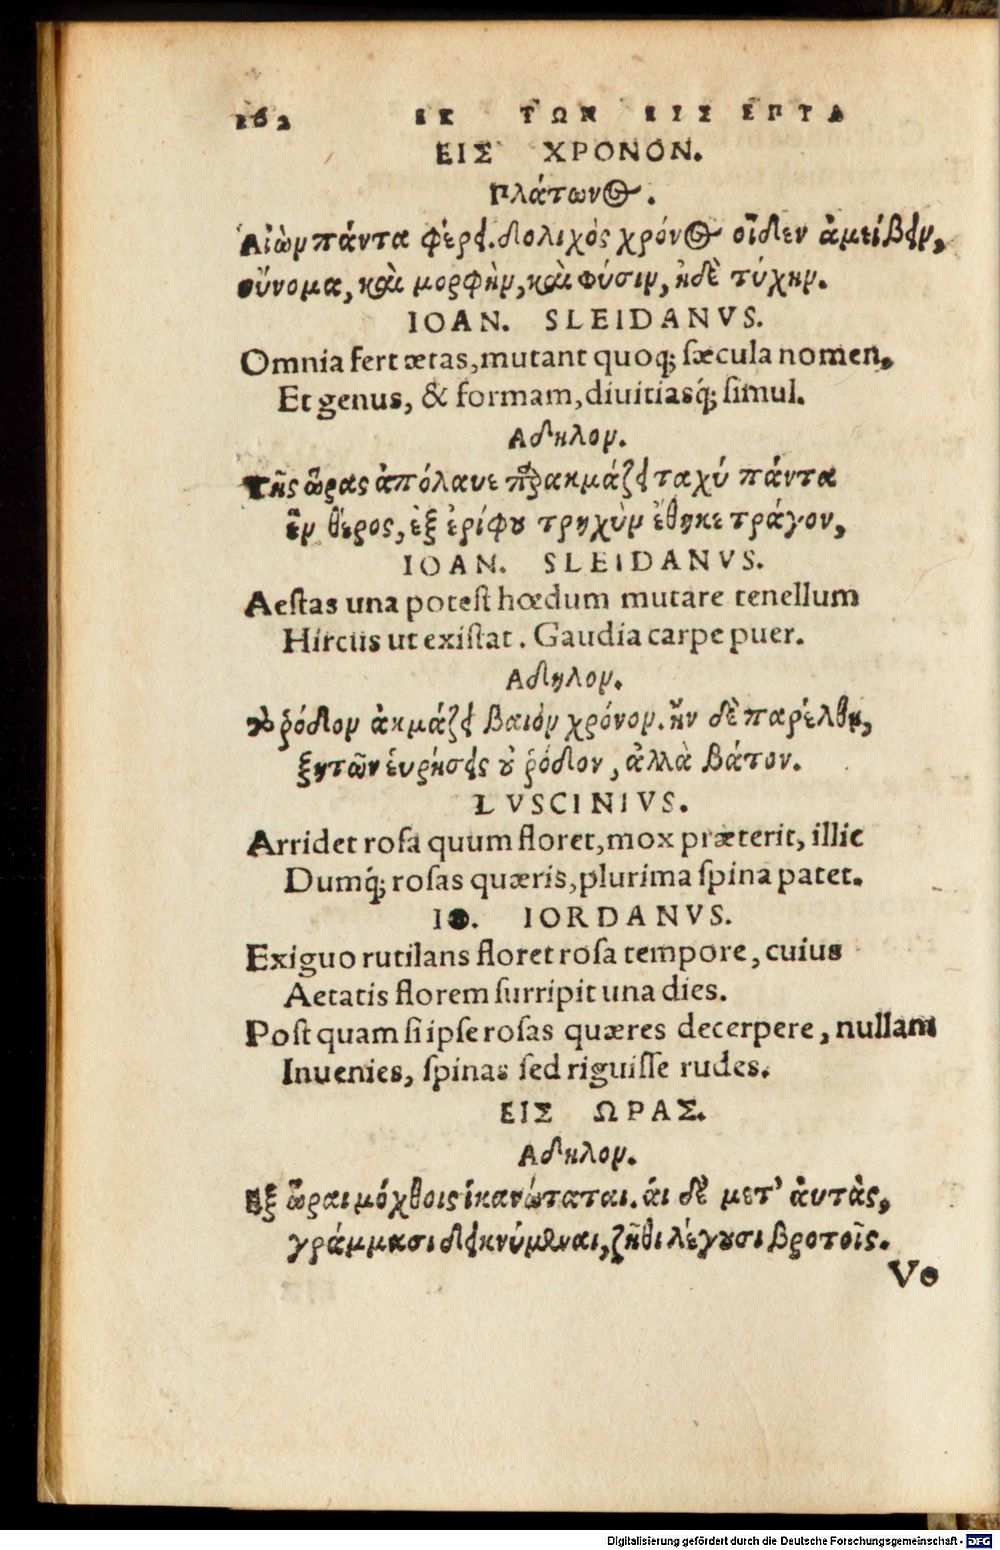 162 ΕΚ ΤΩΝ ΕΙΣ ΕΠΤΑ
ΕΙΣ ΧΡΟΝΟΝ.
Πλάτωνος.
Αἰὼν πάντα φέρει. δολιχὸς χρόνος οἶδεν ἀμείβειν,
οὔνομα, καὶ μορφὴν, καὶ φύσιν, ἠδὲ τύχην.
IOAN. SLEIDANVS.
Omnia fert ætas, mutant quoq; sæcula nomen,
Et genus, & formam, diuitiasq́; simul.
Αδηλον.
Τῆς ὥρας ἀπόλαυε παρακμάζει ταχύ πάντα
ἓν θέρος, ἐξ ἐρίφου τρηχὺν ἔθηκε τράγον,
IOAN. SLEIDANVS.
Aestas una potest hœdum mutare tenellum
Hircus ut existat. Gaudia carpe puer.
Αδηλον.
τὸ ῥόδον ἀκμάζει βαιὸν χρόνον. ἢν δὲ παρέλθη,
ξητῶν ἑυρήσεις ὀυ ῥόδον, ἀλλὰ βάτον.
LVSCINIVS.
Arridet rosa quum floret, mox præterit, illic
Dumq́; rosas quæris, plurima spina patet.
IO. IORDANVS.
Exiguo rutilans floret rosa tempore, cuius
Aetatis florem surripit una dies.
Post quam si ipse rosas quæres decerpere, nullam
Inuenies, spinas sed riguisse rudes.
ΕΙΣ ΩΡΑΣ.
Αδηλον.
Εξ ὧραι μόχθοις ἱκανώταται. ἁι δὲ μετ' ἀυτὰς,
γράμμασι δεικνύμεναι, ζῆθι λέγουσι βροτοῖς.
Vo
Digitalisierung gefördert durch die Deutsche Forschungsgemeinschaft - DFG